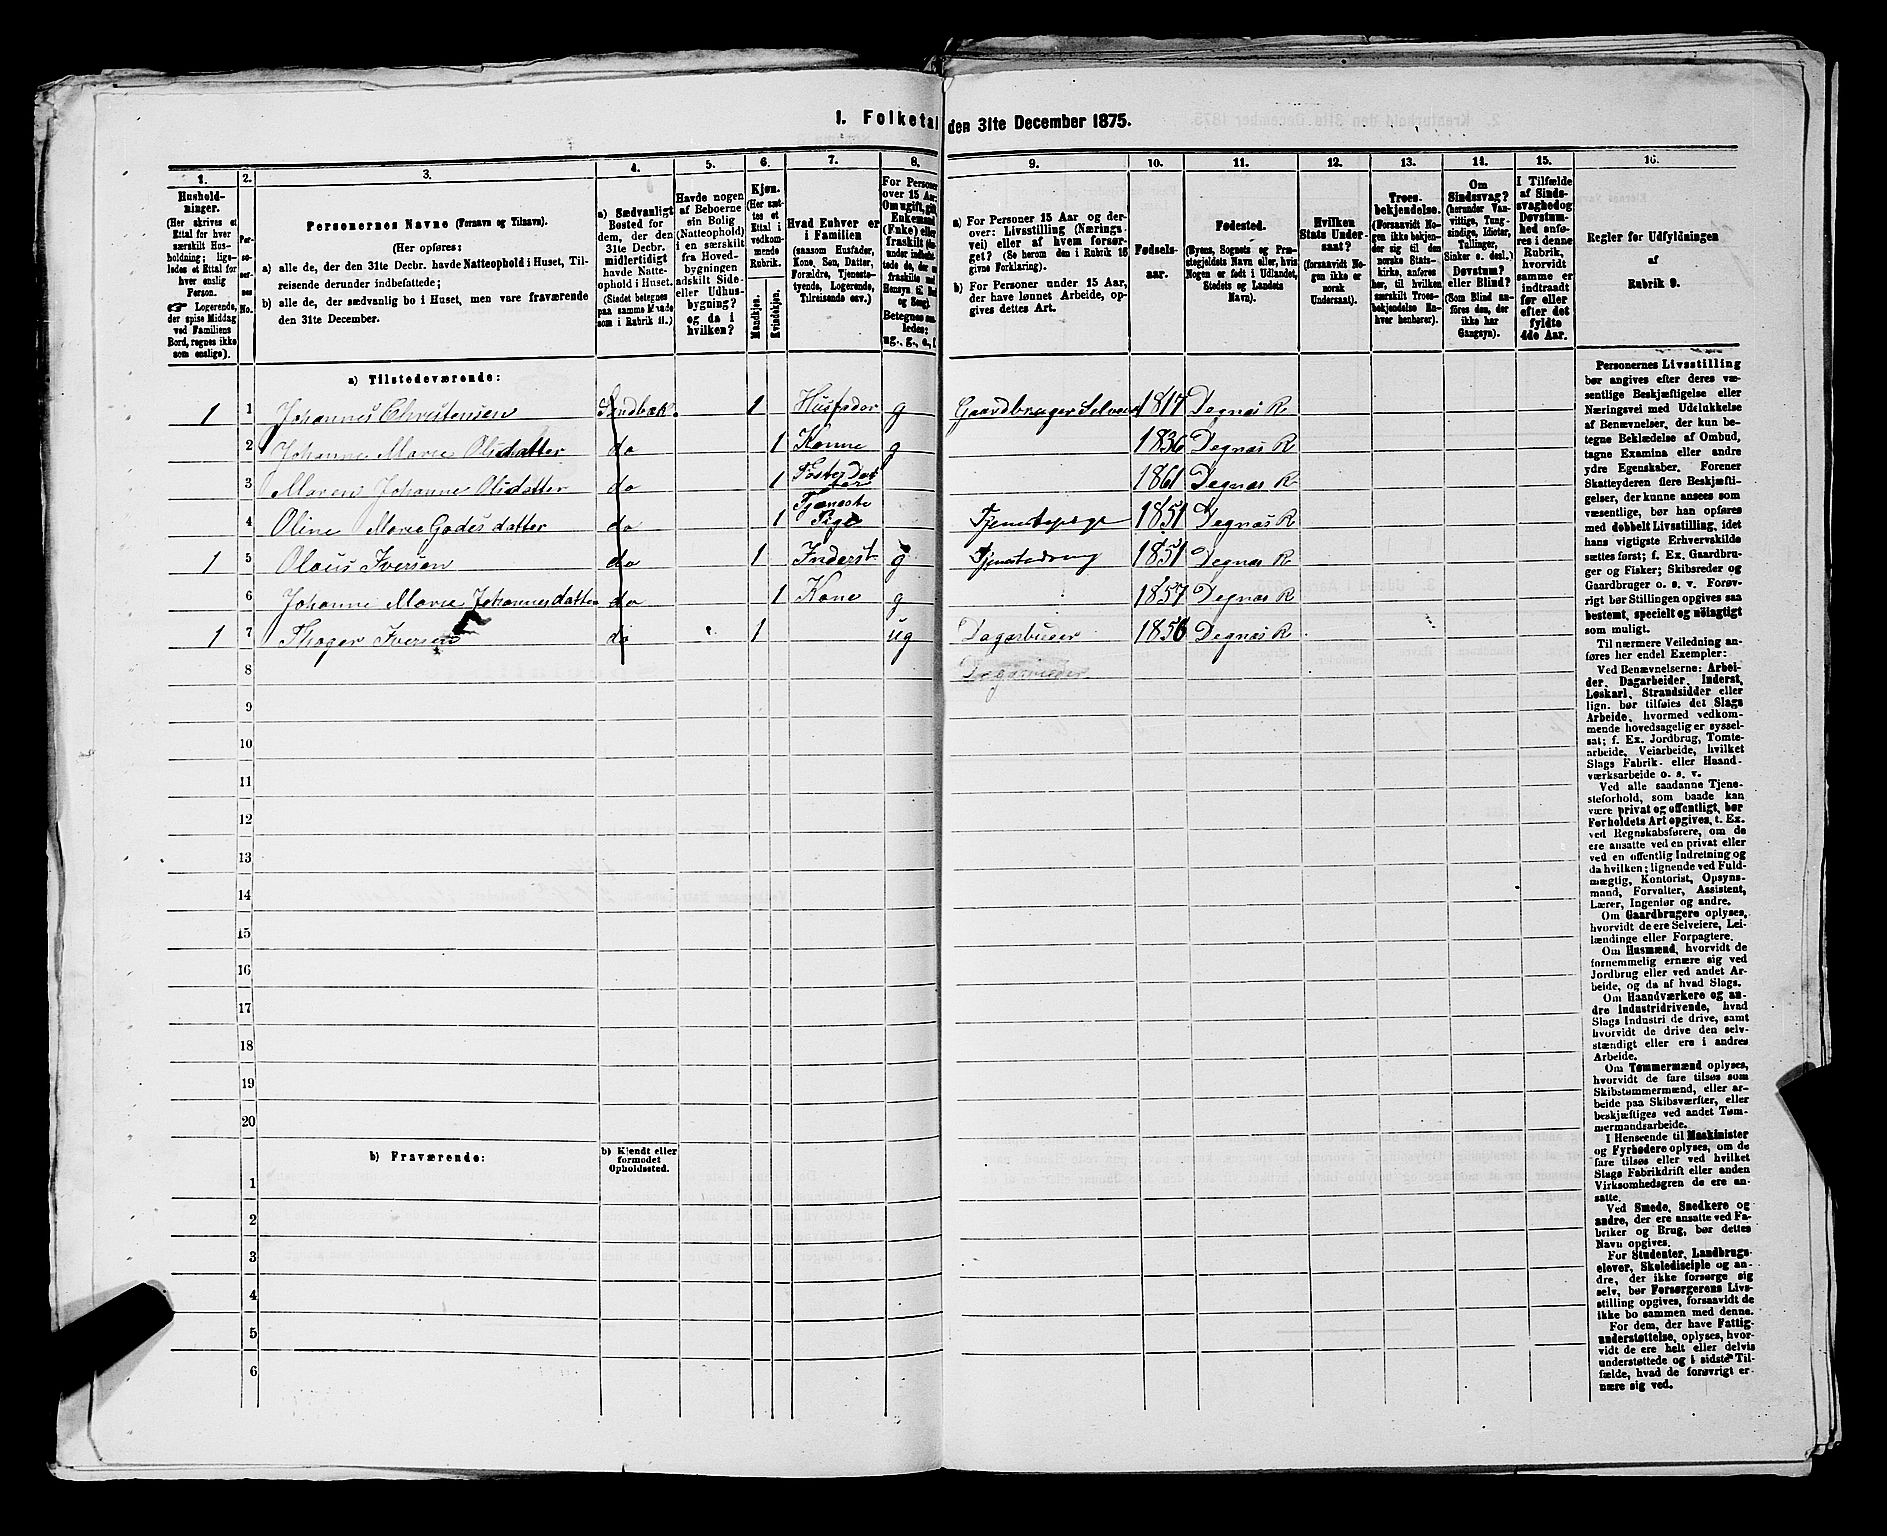 1. Folketal den 31te December 1875.
1. 2. 3. 4. 5. 6. 7. 8. 9. 10. 11. 12. 13. 14. 15. 16.
Hushold-
ninger.
(Her skrives et
Ettal for hver
særskilt Hus-
holdning; lige-
ledes et Ettal for
hver enslig
Person.
☞ Logerende,
der spise Middag
ved Familiens
Bord, regnes ikke
som enslige).
Per-
so-
ner-
nes
No.
Personernes Navne (Fornavn og Tilnavn).
(Her opføres:
a) alle de, der den 31te Decbr. havde Natteophold i Huset, Til-
reisende derunder indbefattede;
b) alle de, der sædvanlig bo i Huset, men vare fraværende
den 31te December.
a) Sædvanligt
Bosted for
dem, der den
31te Decbr.
midlertidigt
havde Natte-
ophold i Huset.
(Stedet betegnes
paa samme Maade
som i Rubrik 11.)
Havde nogen
af Beboerne
sin Bolig
(Natteophold)
i en særskilt
fra Hoved-
bygningen
adskilt Side-
eller Udhus-
bygning?
og da i
hvilken?
Kjøn.
(Her sæt-
tes et
Ettal i
vedkom-
mende
Rubrik.
Mandkjøn.
Kvindekjøn.
Hvad Enhver er
i Familien
(saasom Husfader,
Kone, Søn, Datter,
Forældre, Tjeneste-
tyende, Logerende,
Tilreisende osv.)
For Personer
over 15 Aar:
Om ugift, gift,
Enkemand
(Enke) eller
fraskilt
Betegnes saa-
ledes:
ug., g., e., f.
a) For Personer 15 Aar og der-
over: Livsstilling (Nærings-
vei) eller af hvem forsør-
get? (Se herom den i Rubrik 16
givne Forklaring).
b) For Personer under 15 Aar,
der have lønnet Arbeide, op-
gives dettes Art.
Fødsels-
aar.
Fødested.
(Byens, Sognets og Præ-
stegjeldets Navn eller, hvis
Nogen er født i Udlandet,
Stedets og Landets
Navn).
Hvilken
Stats Under-
saat?
(forsaavidt No-
gen ikke er
norsk
Undersaat).
Troes-
bekjendelse.
(Forsaavidt No-
gen ikke bekjen-
der sig til den
norske Stats-
kirke, anføres
her, til hvilken
særskilt Troes-
bekjendelse En-
hver henhører).
Om
Sindssvag?
(herunder Van-
vittige, Tung-
sindige, Idioter,
Tullinger,
Sinker o. desl.)
Døvstum?
eller Blind?
(Som Blind an-
føres den, der
ikke har
Gangsyn).
I Tilfælde
af Sinds-
svaghed og
Døvstum-
hed anfø-
res i denne
Rubrik,
hvorvidt
samme er
indtraadt
før eller
efter det
fyldte
4de Aar.
Regler for Udfyldningen
af
Rubrik 9.
a) Tilstedeværende:
1 1 Johannes Christensen Sandbæk. 1 Husfader g Gaardbruger Selveier 1817 Degnæs R
2 Johanne Marie Olsdatter do 1 Konne g 1836 Degnæs R
3 Maren Johanne Olsdatter do 1 Foster Datter 1861 Degnæs R
4 Oline Marie Godesdatter do 1 Tjæneste Pige Tjenestepige 1851 Degnæs R
1 5 Olaus Iversen do 1 Inderst g Tjenestedreng 1851 Degnæs R
6 Johanne Marie Johannesdatter do 1 Kone g 1857 Degnæs R
1 7 Thoger Iversen do 1 ug 1856 Degnæs R
8
9
10
11
12
13
14
15
16
17
18
19
20
b) Fraværende:
b) Kjendt eller
formodet
Opholdssted.
1
2
3
4
5
6
Personernes Livsstilling
bør angives efter deres væ-
sentlige Beskjæftigelse eller
Næringsvei med Udelukkelse
af Benævnelser, der kun be-
tegne Beklædelse af Ombud,
tagne Examina eller andre
ydre Egenskaber. Forener
Skatteyderen flere Beskjæfti-
gelser, der kunne ansees som
væsentlige, bør han opføres
med dobbelt Livsstilling, idet
hans vigtigste Erhvervskilde
sættes først; f. Ex. Gaardbru-
ger og Fisker; Skibsreder og
Gaardbruger o. s. v. Forøv-
rigt bør Stillingen opgives saa
bestemt, specielt og nøiagtigt
som muligt.
Til nærmere Veiledning an-
føres her endel Exempler:
Ved Benævnelserne: Arbei-
der, Dagarbeider, Inderst,
Løskarl, Strandsidder eller
lign. bør tilføies det Slags
Arbeide, hvormed vedkom-
mende hovedsagelig er syssel-
sat; f. Ex. Jordbrug, Tomte-
arbeide, Veiarbeide, hvilket
Slags Fabrik- eller Haand-
værksarbeide o. s. v.
Ved alle saadanne Tjene-
steforhold, som baade kan
være privat og offentligt, bør
Forholdets Art opgives, t. Ex.
ved Regnskabsførere, om de
ere ansatte ved en privat eller
ved en offentlig Indretning og
da hvilken; lignende ved Fuld-
mægtig, Kontorist, Opsyns-
mand, Forvalter, Assistent,
Lærer, Ingeniør og andre.
Om Gaardbrugere oplyses,
hvorvidt de ere Selveiere, Lei-
lændinge eller Forpagtere.
Om Husmænd, hvorvidt de
fornemmelig ernære sig ved
Jordbrug eller ved andet Ar-
beide, og da af hvad Slags.
Om Haandværkere og an-
dre Industridrivende, hvad
Slags Industri de drive, samt
hvorvidt de drive den selv-
stændigt eller ere i andres
Arbeide.
Om Tømmermænd oplyses,
hvorvidt de fare tilsøs som
Skibstømmermænd, eller ar-
beide paa Skibsværfter, eller
beskjæftiges ved andet Tøm-
mermandsarbeide.
I Henseende til Maskinister
og Fyrbødere oplyses, om de
fare tilsøs eller ved hvilket
Slags Fabrikdrift eller anden
Virksomhedsgren de ere an-
satte.
Ved Smede, Snedkere og
andre, der ere ansatte ved Fa-
briker og Brug, bør dettes
Navn opgives.
For Studenter, Landbrugs-
elever, Skoledisciple og an-
dre, der ikke forsørge sig
selv, bør Forsørgerens Livs-
stilling opgives, forsaavidt de
ikke bo sammen med denne.
For dem, der have Fattig-
understøttelse, oplyses, hvor-
vidt de ere helt eller delvis
understøttede og i sidste Til-
fælde, hvad de forøvrigt er-
nære sig ved.